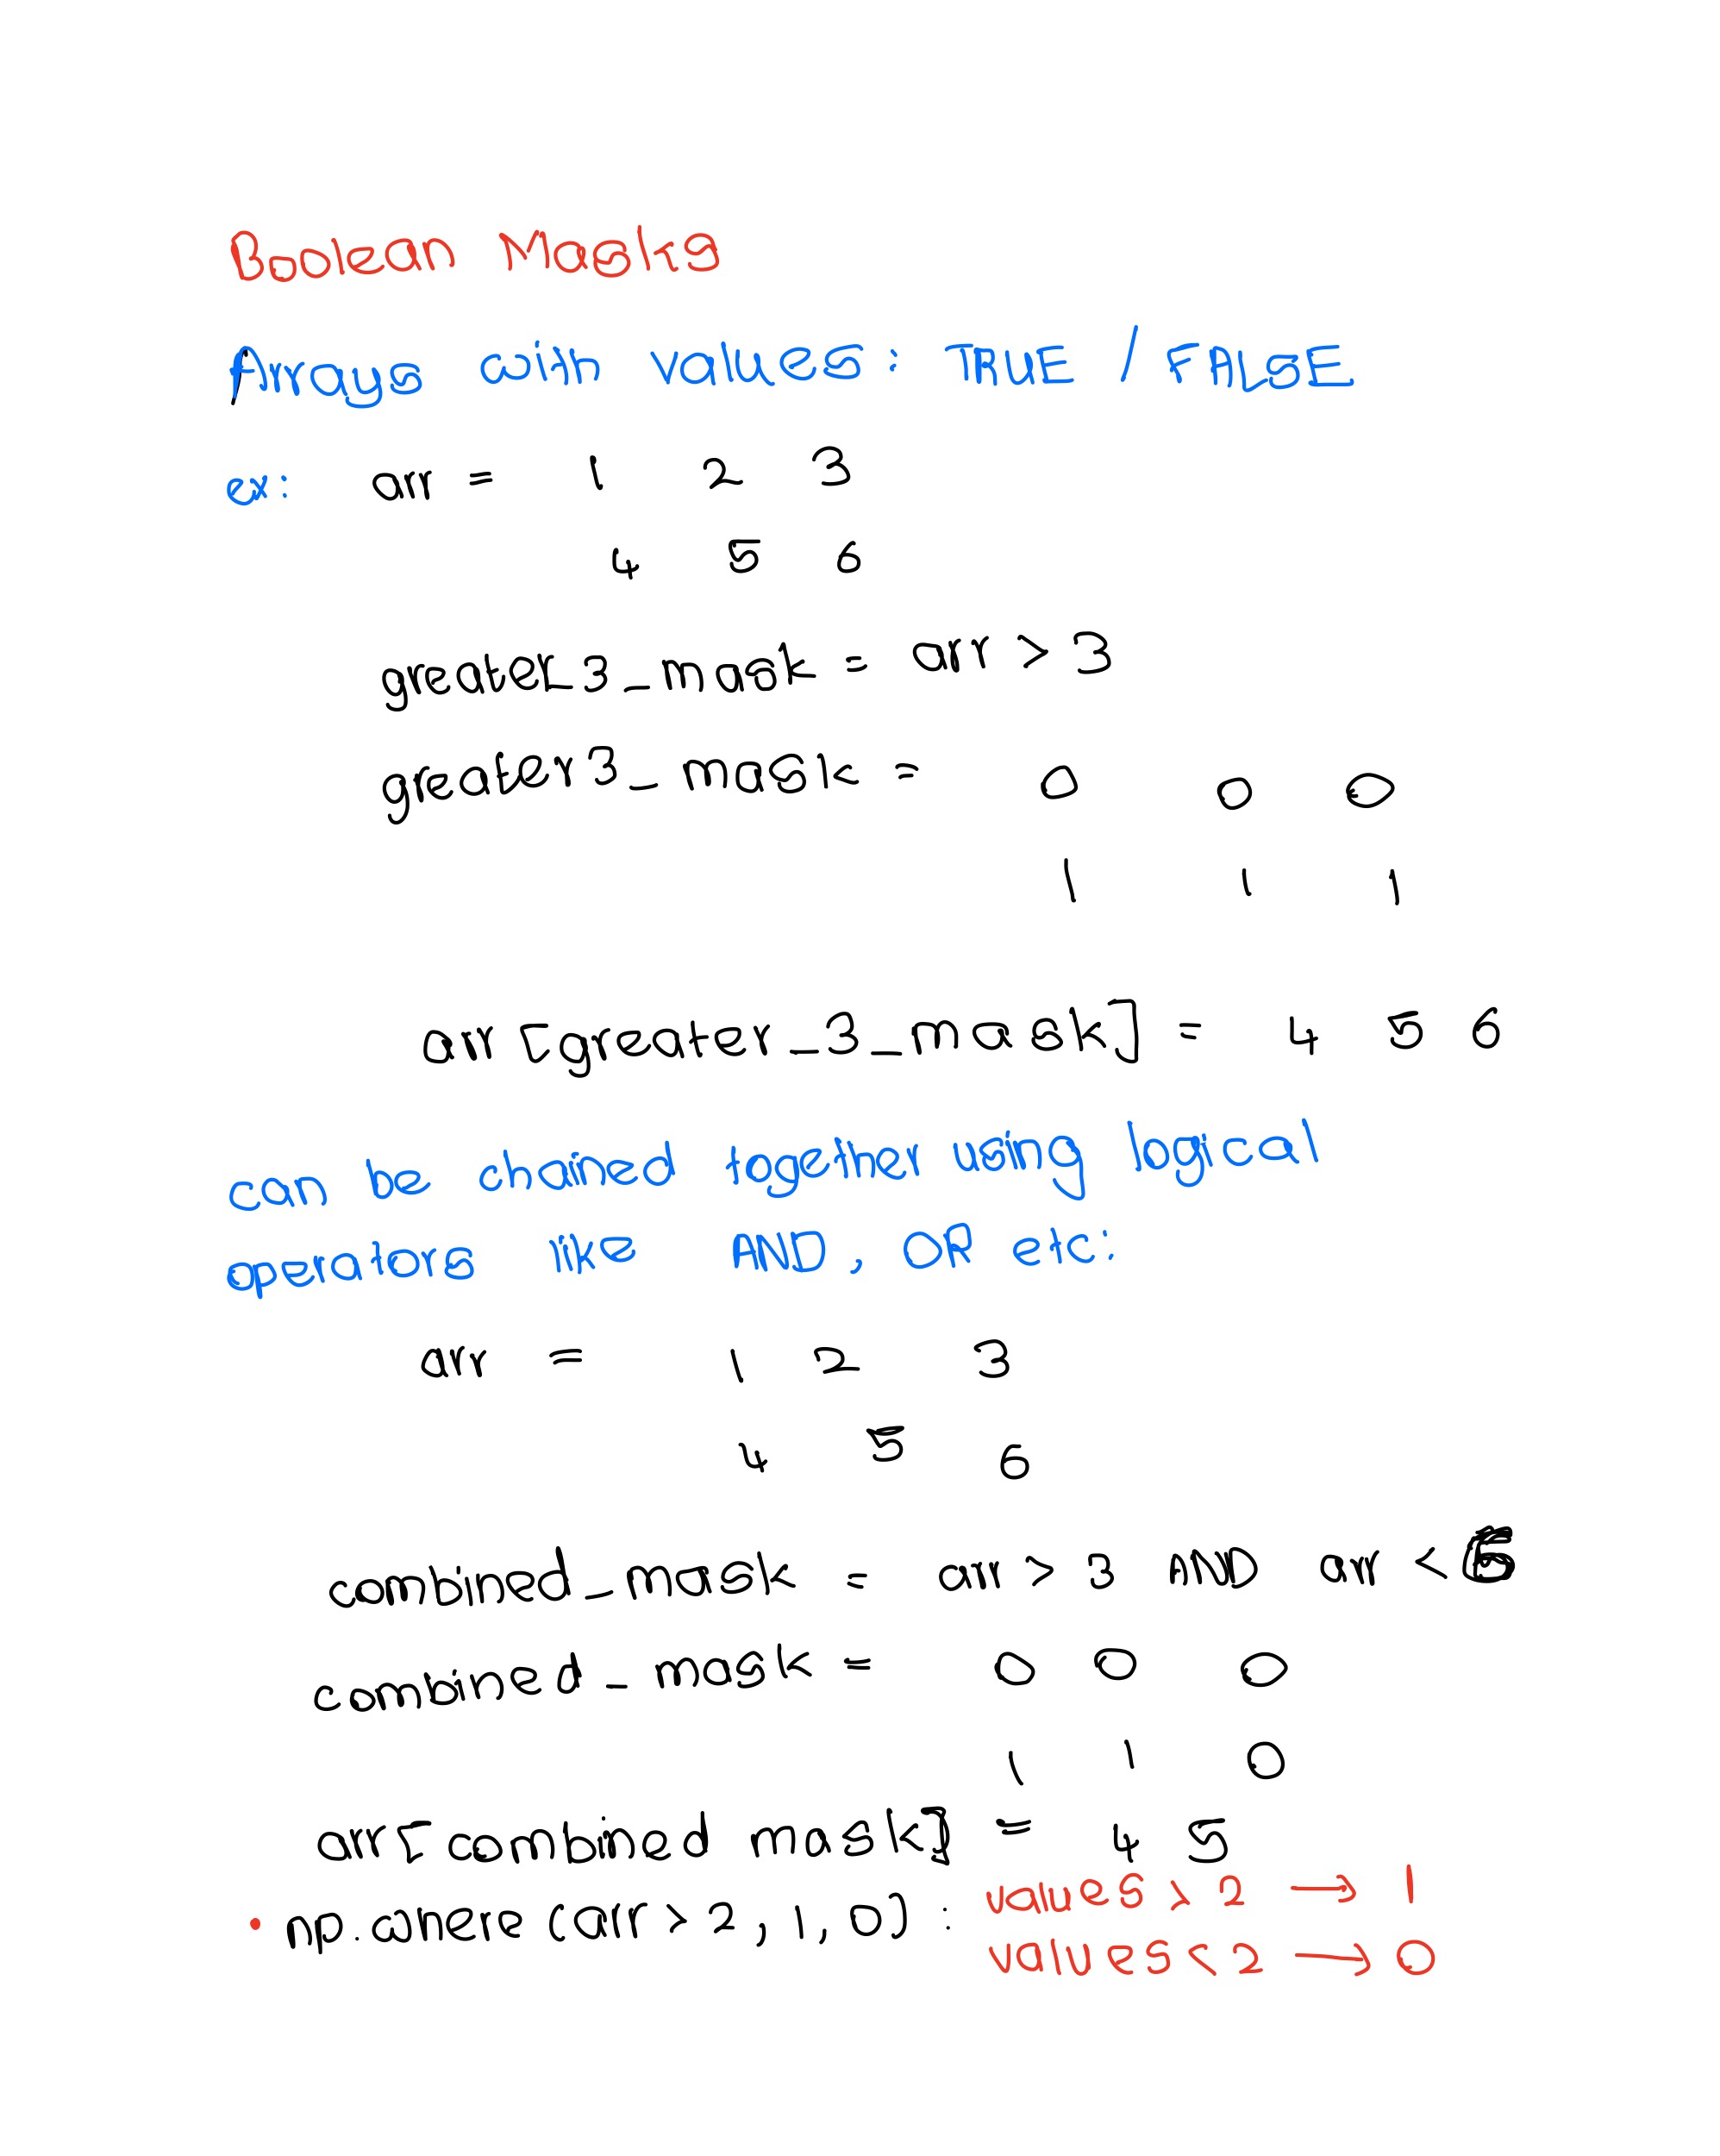 Boolean Masks
Arrays with values: TRUE / FALSE
ex: arr = 1 2 3
4 5 6
greater_3_mask = arr > 3
greater3_mask = 0 0 0
1 1 1
arr [greater_3_mask] = 4 5 6
can be chained together using logical
operators like AND, OR etc:
arr = 1 2 3
4 5 6
combined_mask = arr > 3 AND arr < 6
combined_mask = 0 0 0
1 1 0
arr[combined mask] = 4 5
• np.where (arr > 2, 1, 0) : values > 2 → 1
values < 2 → 0